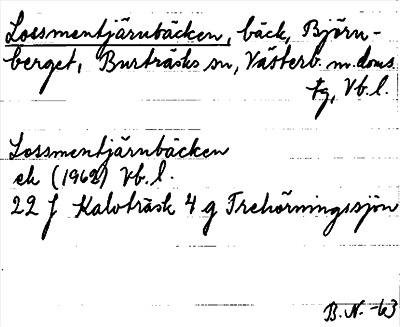 Lossmentjärnbäcken, bäck, Björn-
berget, Burträsks sn, Västerb. m. doms
tg, Vb. l.
Lossmentjärnbäcken
ek (1962) Vb. l.
22 J Kalvträsk 4 g Trehörningssjön
B. N. -63